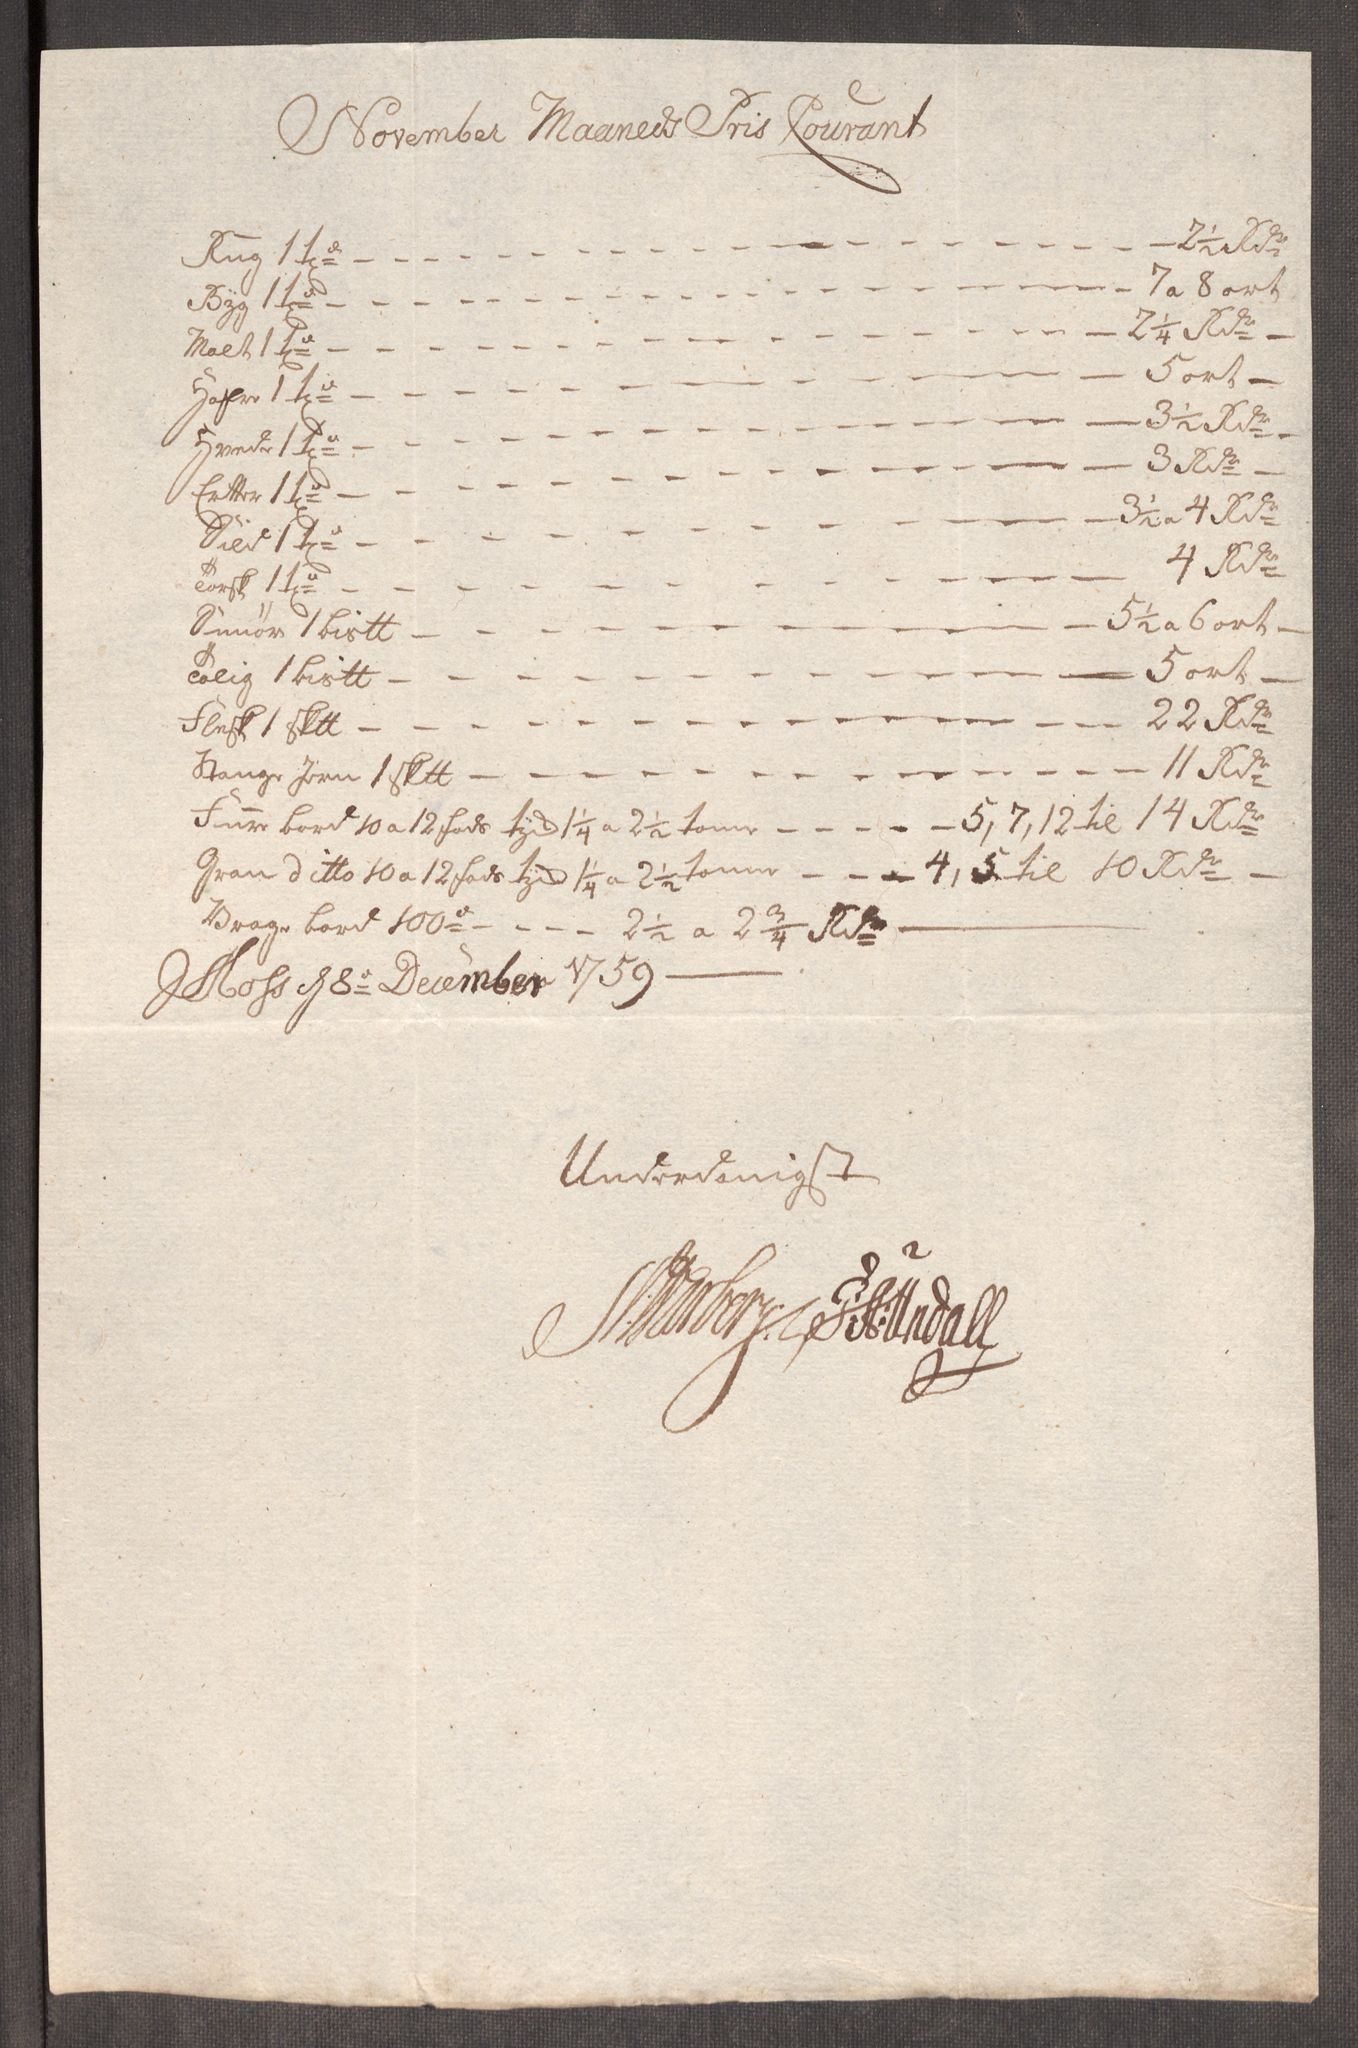 November Maaneds Pris Courant
Rug 1 tde 2 1/2 Rdr
Byg 1 tde 7 a 8 ort
Malt 1 tde 2 1/4 Rdr
Hafre 1 tde 5 ort
Hvede 1 tde 3 1/2 Rdr
Ertter 1 tde 3 Rdr
Sild 1 tde 3 1/2 a 4 Rdr
Torsk 1 tde 4 Rdr
Smør 1 bistt 5 1/2 a 6 ort
Talig 1 bistt 5 ort
Flesk 1 sktt 22 Rdr
Stange Jern 1 sktt 11 Rdr
Furre bord 10 a 12 fods 1 1/4 a 2 1/2 tomme 5, 7, 12 til 14 Rdr
Gran ditto 10 a 12 fods 1 1/4 a 2 1/2 tomme 4, 5 til 10 Rdr
Vrage bord 100de 2 1/2 a 2 3/4 Rdr
Moss d 8de December 1759
Underdanigst